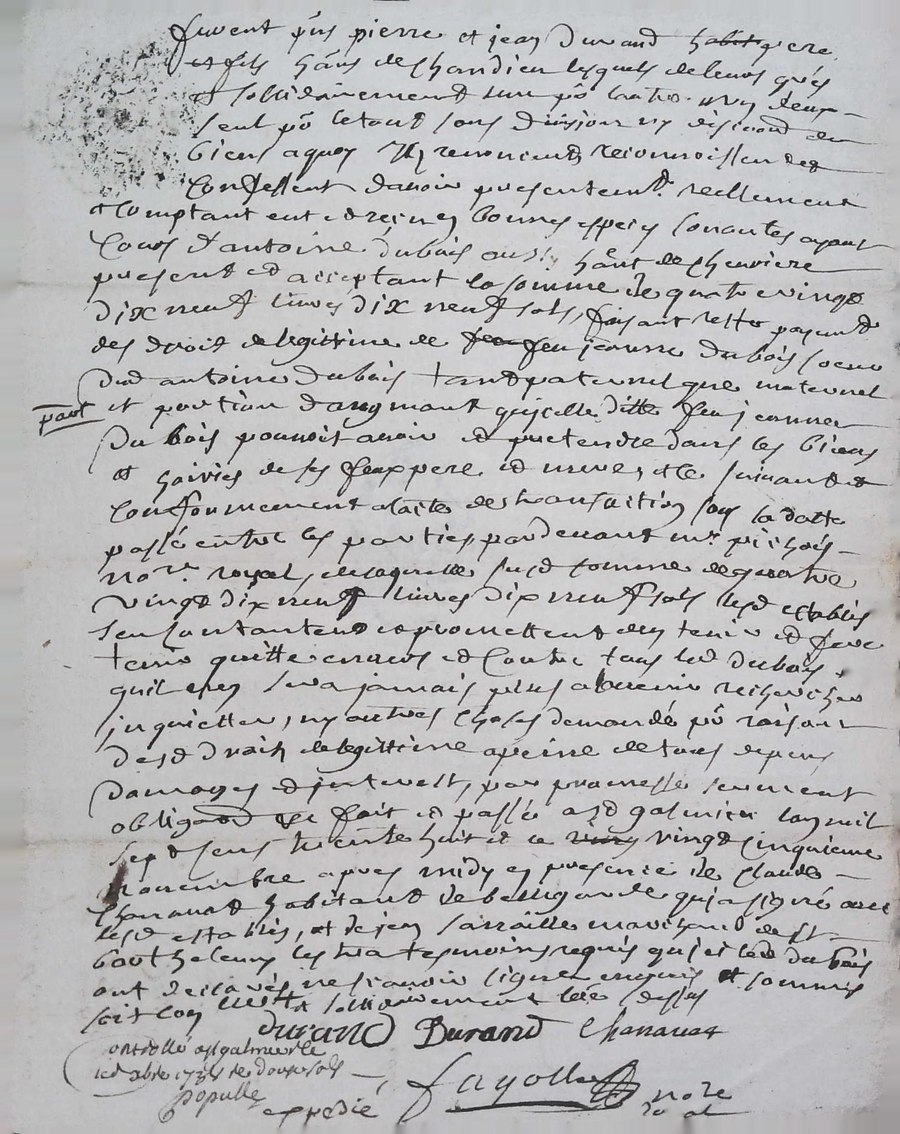 furent p͞ns pierre et jean Durand habit pere
et fils h͞ans de Chandieu lesquels de leurs grés
et sollidairement l'un p͞o l'autre un deux
seul p͞o le tout sans division ny discution de
biens a quoy Ils renoncent reconnoissent et
Confessent d'avoir presentemt. reellement
et Comptant eut et reçeu en bonnes especes sonantes ayant
Cours d'antoine dubois aussy h͞ant de Cheuriere
present et acceptant la somme de quatre vingt
dix neuf livres dix neuf sols, faisant reste payement
des droit de legittime de feu jeanne Dubois soeur
dud antoine dubois tant paternel que maternel
part
et portion d'augmant qu'icelle ditte feu jeanne
Du bois pouvoit avoir et pretendre dans les biens
et hoiries de ses feux pere et mere, et le suivant et
Conformement a l'acte de transaction sous sa datte
passé entre les parties par devant mr. pichois
nore. royal, de laquelle susd somme de quatre
vingt dix neuf livres dix neuf sols lesd establis
sen contantent et promettent den tenir et faire
tenir quitte envers et Contre tous led dubois
quil nen sera jamais plus a l'avenir rechercher
inquietter, ny autres choses demandé p͞o raison
desd droits de legittime a peine de tous depens
damages et interest, par promesse serment
obligaon et fait et passé a sd galmier lan mil
sept sens trente huit et le ving vingt cinquieme
novembre apres midy en presence de Claude
Chanavat habitant de bellegarde qui a signé avec
lesd establis, et de jean marchand de St
barthelemy les tra tesmoins requis qui et led dubois
ont declarés ne scavoir signer enquis et sommés
soit Con sollidairement
durand Durand Chanavat
Controllé a st galmier le
xbre 1738 re douze sols
Populle
expedié
fayolle
nore
royal